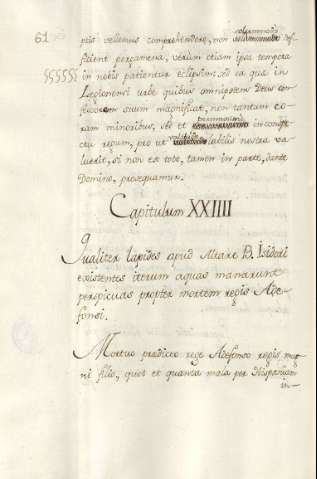 61
ptis vellemus comprehendere, non solummodo def-
ficient pergamena, verum etiam ipsa tempora
in nobis patientur eclipsim. sed ea que in
Legionensi urbe quibus omnipotens Deus con-
suum magnificat, non tantum co-
ram minoribus, sed et in conspe-
ctu regum, pro ut labilis nostra va-
luerit, si non ex toto, tamen in parte, dante
Domino, prosequamur.
Capitulum XXIIII
Qualiter lapides apud Altare B. Isidori
existentes iterum aquas manarunt
perspicuas propter mortem regis Ade-
fonsi.
Mortuo predicto rege Adefonso regis mag-
ni filio, quot et quanta mala per Hispaniam
in-